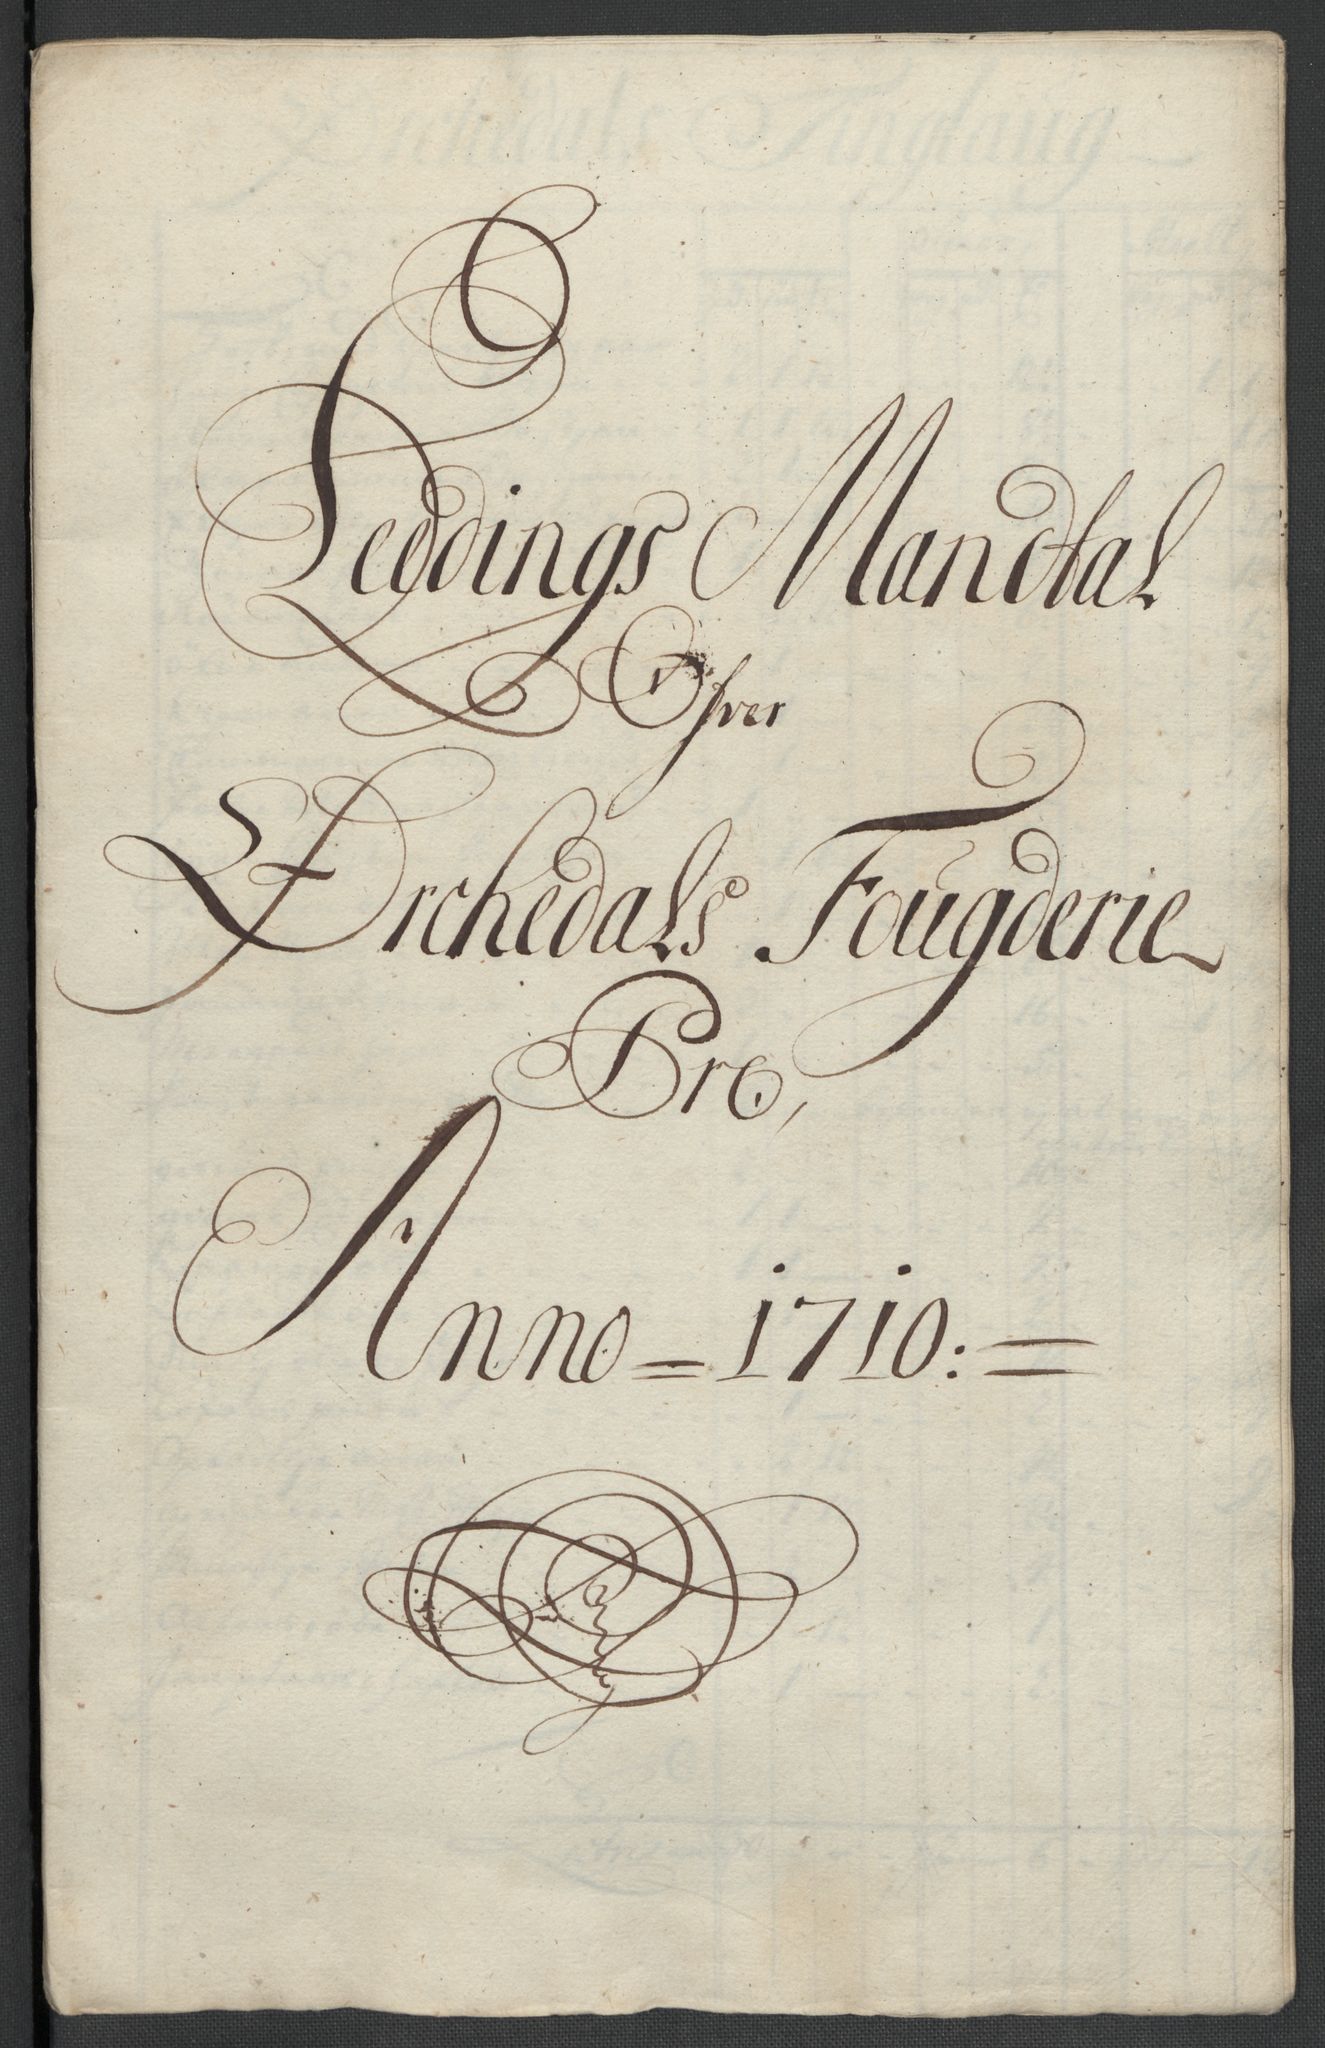 Leddings Mandtal
Ofver
Orchedals Fougderie
Pro,
Anno = 1710: =